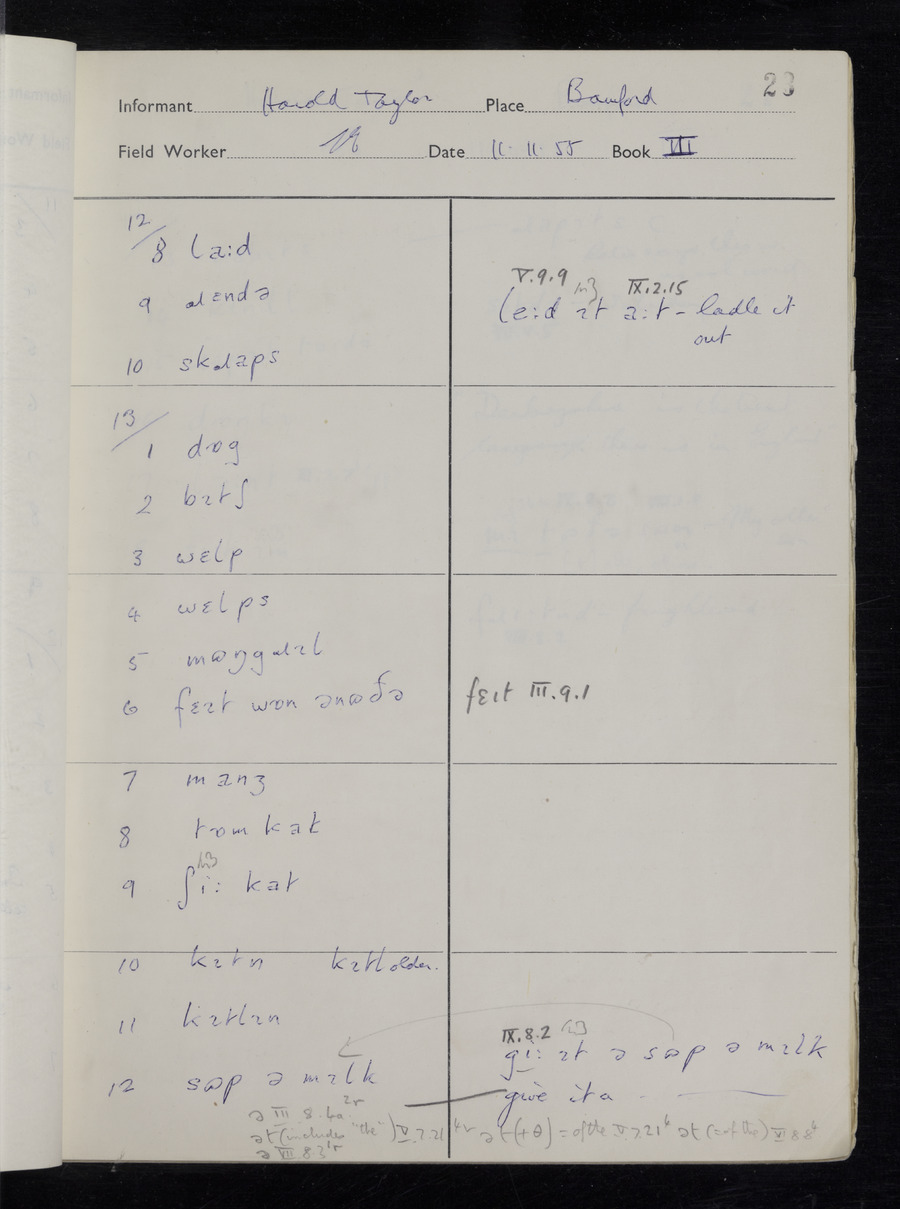 23
Informant Harold Taylor Place Bamford
Field Worker Date 11.11.55 Book III
12/
8 la:d
9 ɹɛndə
10 skɹaps
V.9.9 IX.2.15
le:d ɪt a:t - ladle it
out
13/
1 dɒg
2 bɪtʃ
3 wɛlp
4 wɛlps
5 mɷŋgɹɪl
6 fɛɪt wɒn ənɷðə
fɛɪt III.9.1
7 manʒ
8 tɒm kat
9 ʃi: kat
10 kɪtn kɪtl older.
11 kɪtlɪn
IX.8.2
gi: ɪt ə sɷp ə mɪlk
12 sɷp ə mɪlk
give it a
ə III 8.4a
ət (includes "the") V.7.21 ət (+θ) = of the V.7.21 ət (= of the) VI 8.8
ə VII 8.3